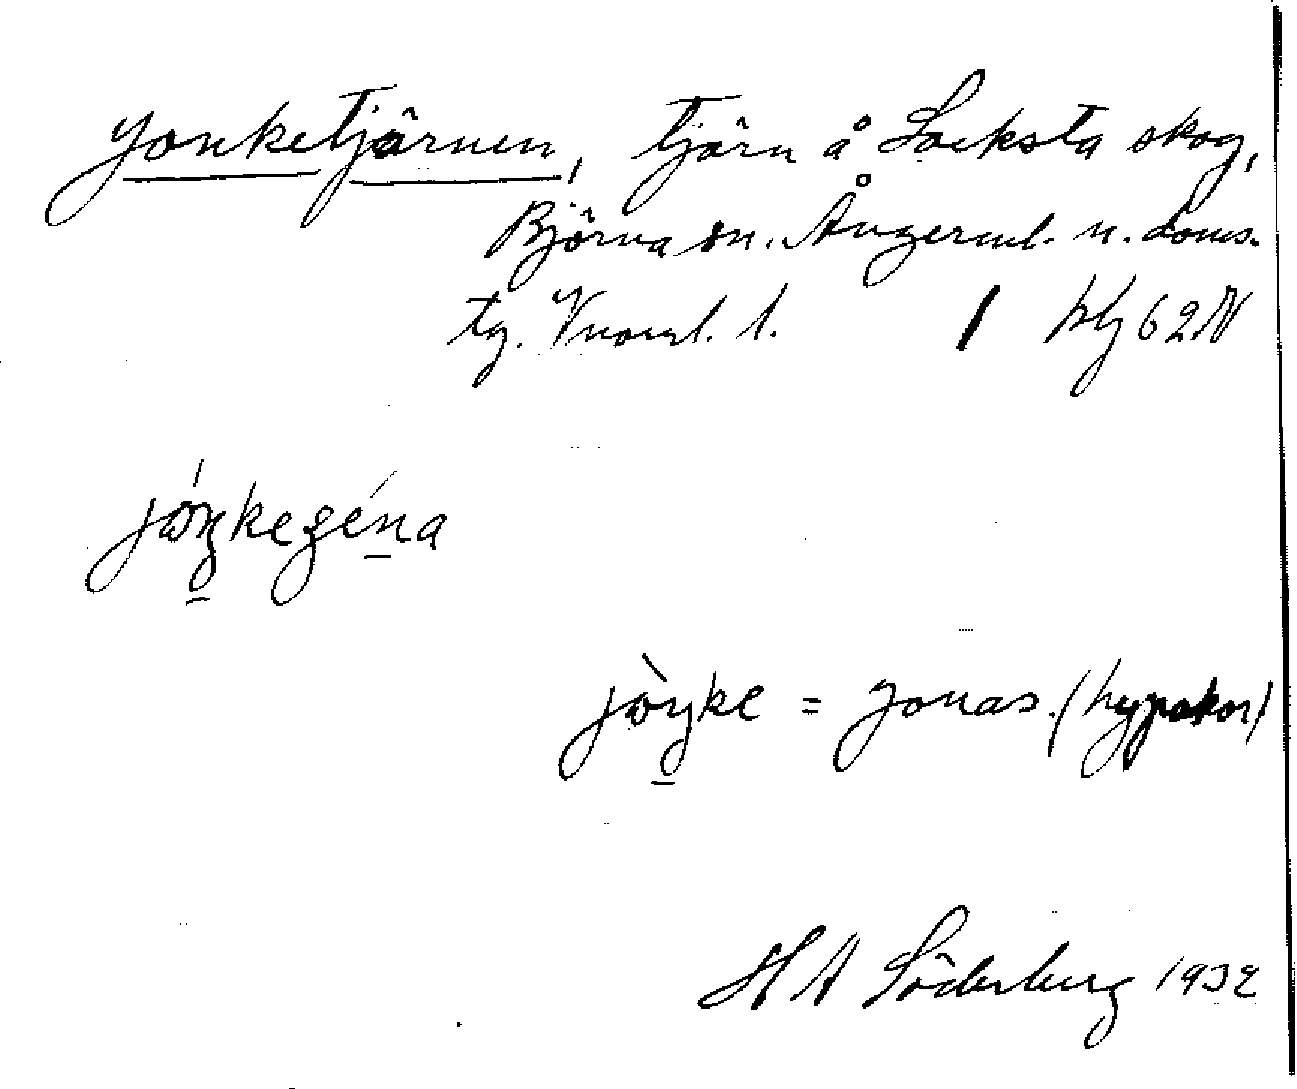 Jonketjärnen, tjärn å Locksta skog,
Björna sn. Ångerml. n. doms.
tg. Vnorrl. l. / kbl 62 N
jóŋkeʒéna
jòŋke = Jonas. (hypokor)
H A Söderberg 1932